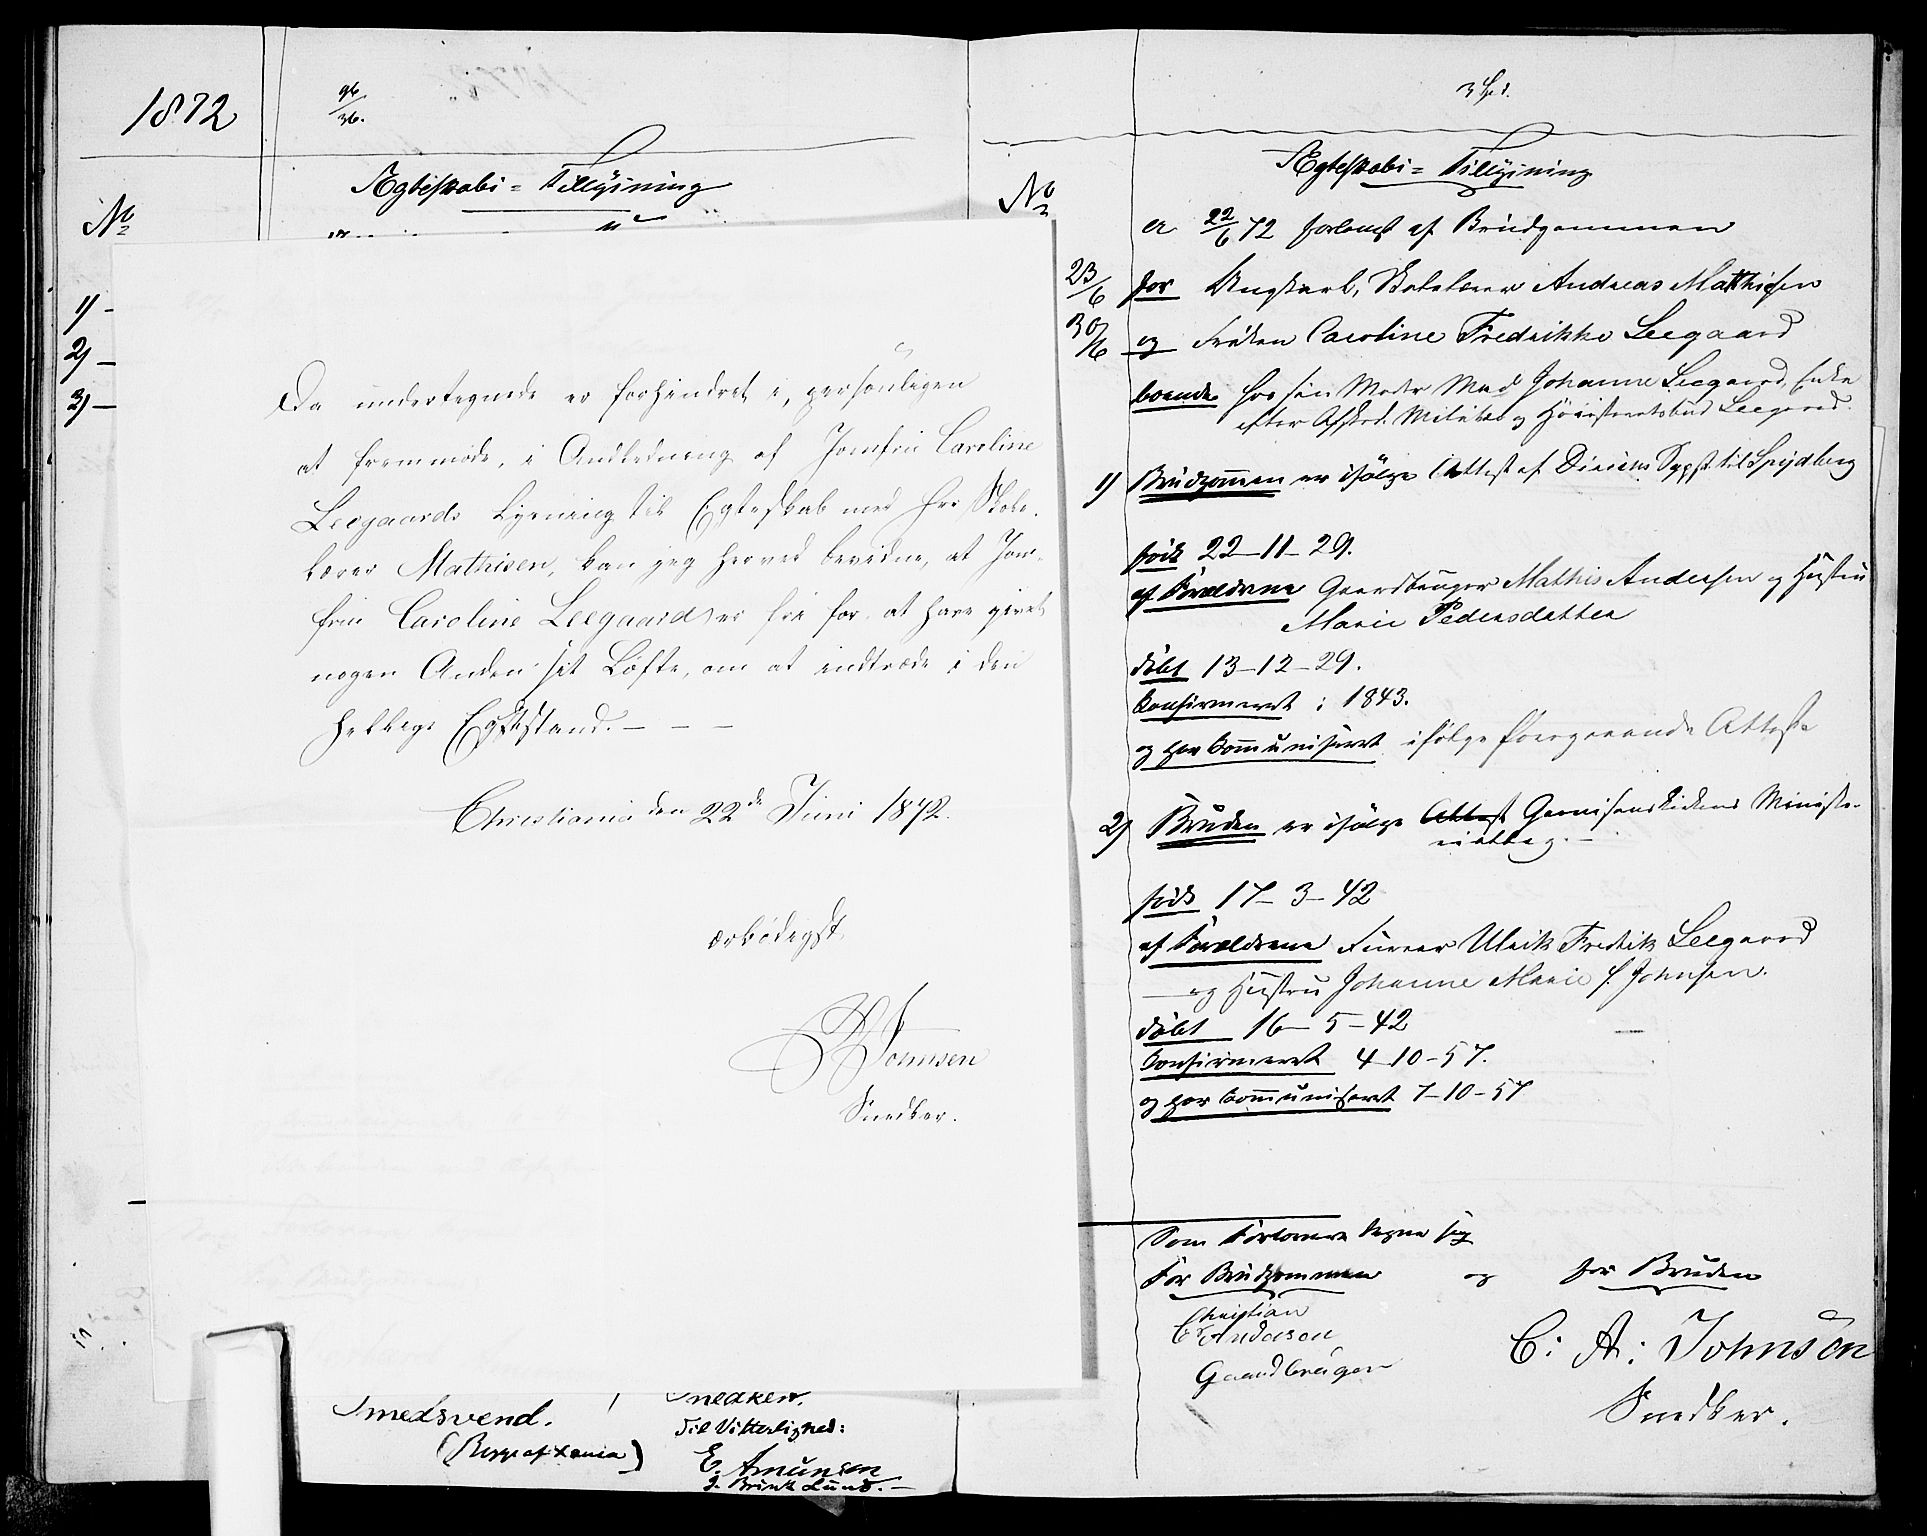 1872
96/36.
Ægteskabs=Tillysning
No
1) -
2) -
3) -
Da undertegnede er forhindret i, personligen
at fremmøde, i Andledning af Jomfru Caroline
Leegaards Lysning til Egteskab med Her Skole-
lærer Mathisen, kan jeg herved bevidne, at Jom-
fru Caroline Leegaard er fri for at have givet
nogen Anden sit Løfte, om at indtræde i den
hellige Egtestand. - - -
Christiania den 22de Juni 1872.
ærbødigst
Johnsen
Snedker.
Smedsvend.
Snedker.
Til Vitterlighed:
E. Amunsen
J. Brink Lund. -
Ægteskabs=Tillysning
No
er 22/6 72 forlangt af Brudgommen
23/6 for Ungkarl, Skolelærer Andreas Mathisen
30/6 og Frøken Caroline Fredrikke Leegaard
boende hos sin Moder Mad. Johanne Leegaard, Enke
efter Afskd. Militær og Høiesteretsbud Leegaard.
1) Brudgommen er ifølge Attest af Sypst. til Spydberg
født 22-11-29.
af Forældrene Gaardbruger Mathis Andersen og Hustru
Marie Pedersdatter
døbt 13-12-29.
Confirmeret i 1843.
og har kommuniseret ifølge foregaaende Attest
2) Bruden er ifølge Attest Garnisonskirkens Ministe-
rialbog. -
født 17-3-42
af Forældrene Furer Ulrik Fredrik Leegaard
og Hustru Johanne Marie f. Johnsen.
døbt 16-5-42
Confirmeret 4-10-57.
og har kommuniseret 7-10-57
Som Forlovere tegne sig
For Brudgommen og for Bruden
Christian
Anderson
Gaardbruger
C. A. Johnsen
Snedker.